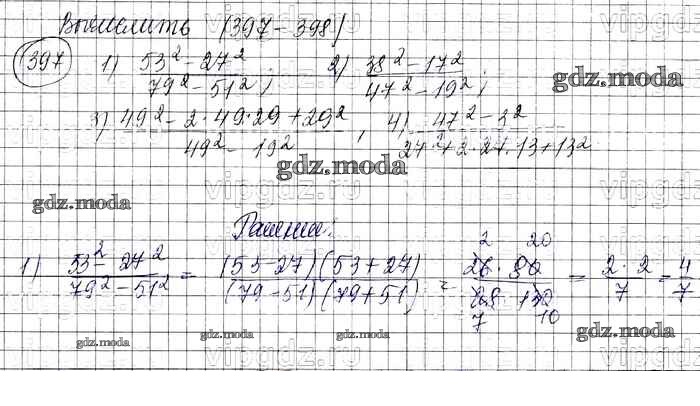 Вычислить (397-398)
397 1) 53² - 27² / 79² - 51² ; 2) 38² - 17² / 47² - 19² ;
gdz.moda
3) 49² - 2·49·29 + 29² / 49² - 19² , 4) 47² - 3² / 27² + 2·27·13 + 13²
gdz.moda
vipgdz.ru
gdz.moda
Решение:
1) 53² - 27² / 79² - 51² = (53-27)(53+27) / (79-51)(79+51) = 26·80 / 28·130 = 2·2 / 7 = 4/7
2 20
7 10
gdz.moda
gdz.moda gdz.moda gdz.moda
vipgdz.ru